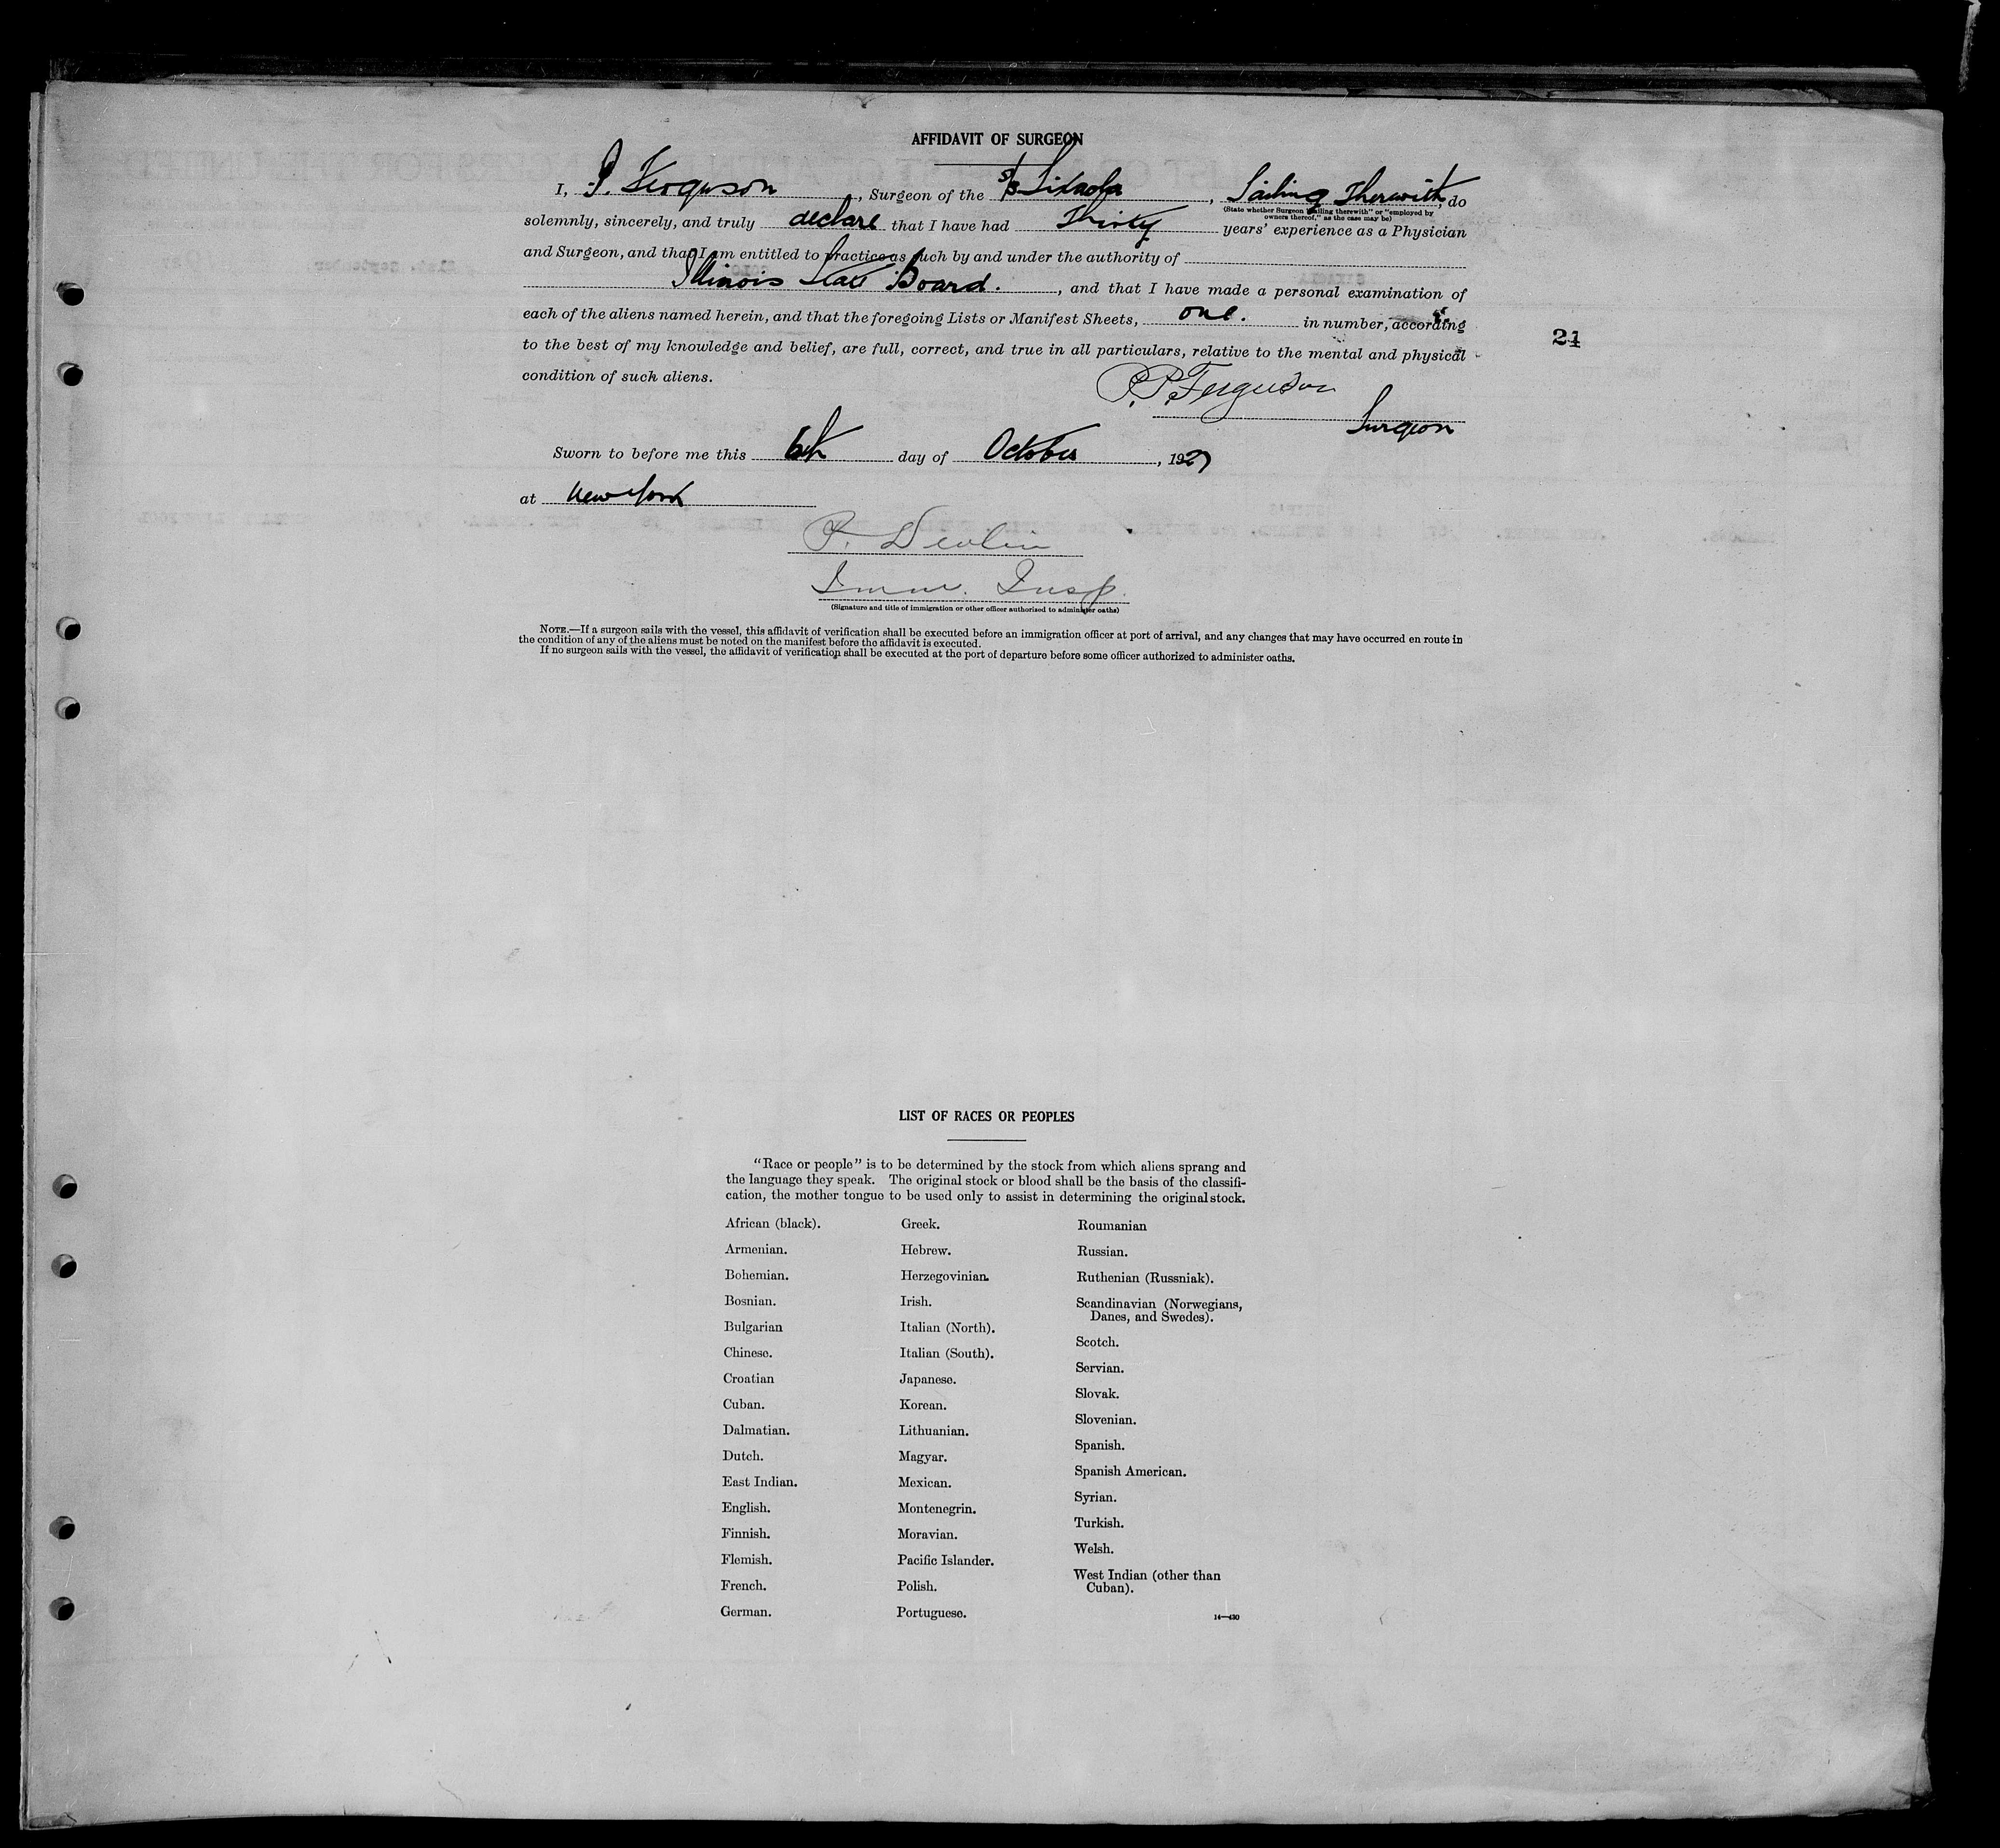 AFFIDAVIT OF SURGEON
I, P. Ferguson, Surgeon of the S/S Sixaola, Sailing Therewith, do
(State whether Surgeon "sailing therewith" or "employed by
owners thereof," as the case may be)
solemnly, sincerely, and truly declare that I have had Thirty years' experience as a Physician
and Surgeon, and that I am entitled to practice as such by and under the authority of
Illinois State Board. , and that I have made a personal examination of
each of the aliens named herein, and that the foregoing Lists or Manifest Sheets, one. in number, according
to the best of my knowledge and belief, are full, correct, and true in all particulars, relative to the mental and physical
condition of such aliens.
21
P.P. Ferguson
Surgeon
Sworn to before me this 6th day of October, 1927
at New York
P. Devlin
Imm. Insp.
(Signature and title of immigration or other officer authorized to administer oaths)
NOTE.—If a surgeon sails with the vessel, this affidavit of verification shall be executed before an immigration officer at port of arrival, and any changes that may have occurred en route in
the condition of any of the aliens must be noted on the manifest before the affidavit is executed.
If no surgeon sails with the vessel, the affidavit of verification shall be executed at the port of departure before some officer authorized to administer oaths.
LIST OF RACES OR PEOPLES
"Race or people" is to be determined by the stock from which aliens sprang and
the language they speak. The original stock or blood shall be the basis of the classifi-
cation, the mother tongue to be used only to assist in determining the original stock.
African (black).
Armenian.
Bohemian.
Bosnian.
Bulgarian
Chinese.
Croatian
Cuban.
Dalmatian.
Dutch.
East Indian.
English.
Finnish.
Flemish.
French.
German.
Greek.
Hebrew.
Herzegovinian.
Irish.
Italian (North).
Italian (South).
Japanese.
Korean.
Lithuanian.
Magyar.
Mexican.
Montenegrin.
Moravian.
Pacific Islander.
Polish.
Portuguese.
Roumanian
Russian.
Ruthenian (Russniak).
Scandinavian (Norwegians,
Danes, and Swedes).
Scotch.
Servian.
Slovak.
Slovenian.
Spanish.
Spanish American.
Syrian.
Turkish.
Welsh.
West Indian (other than
Cuban).
14—430